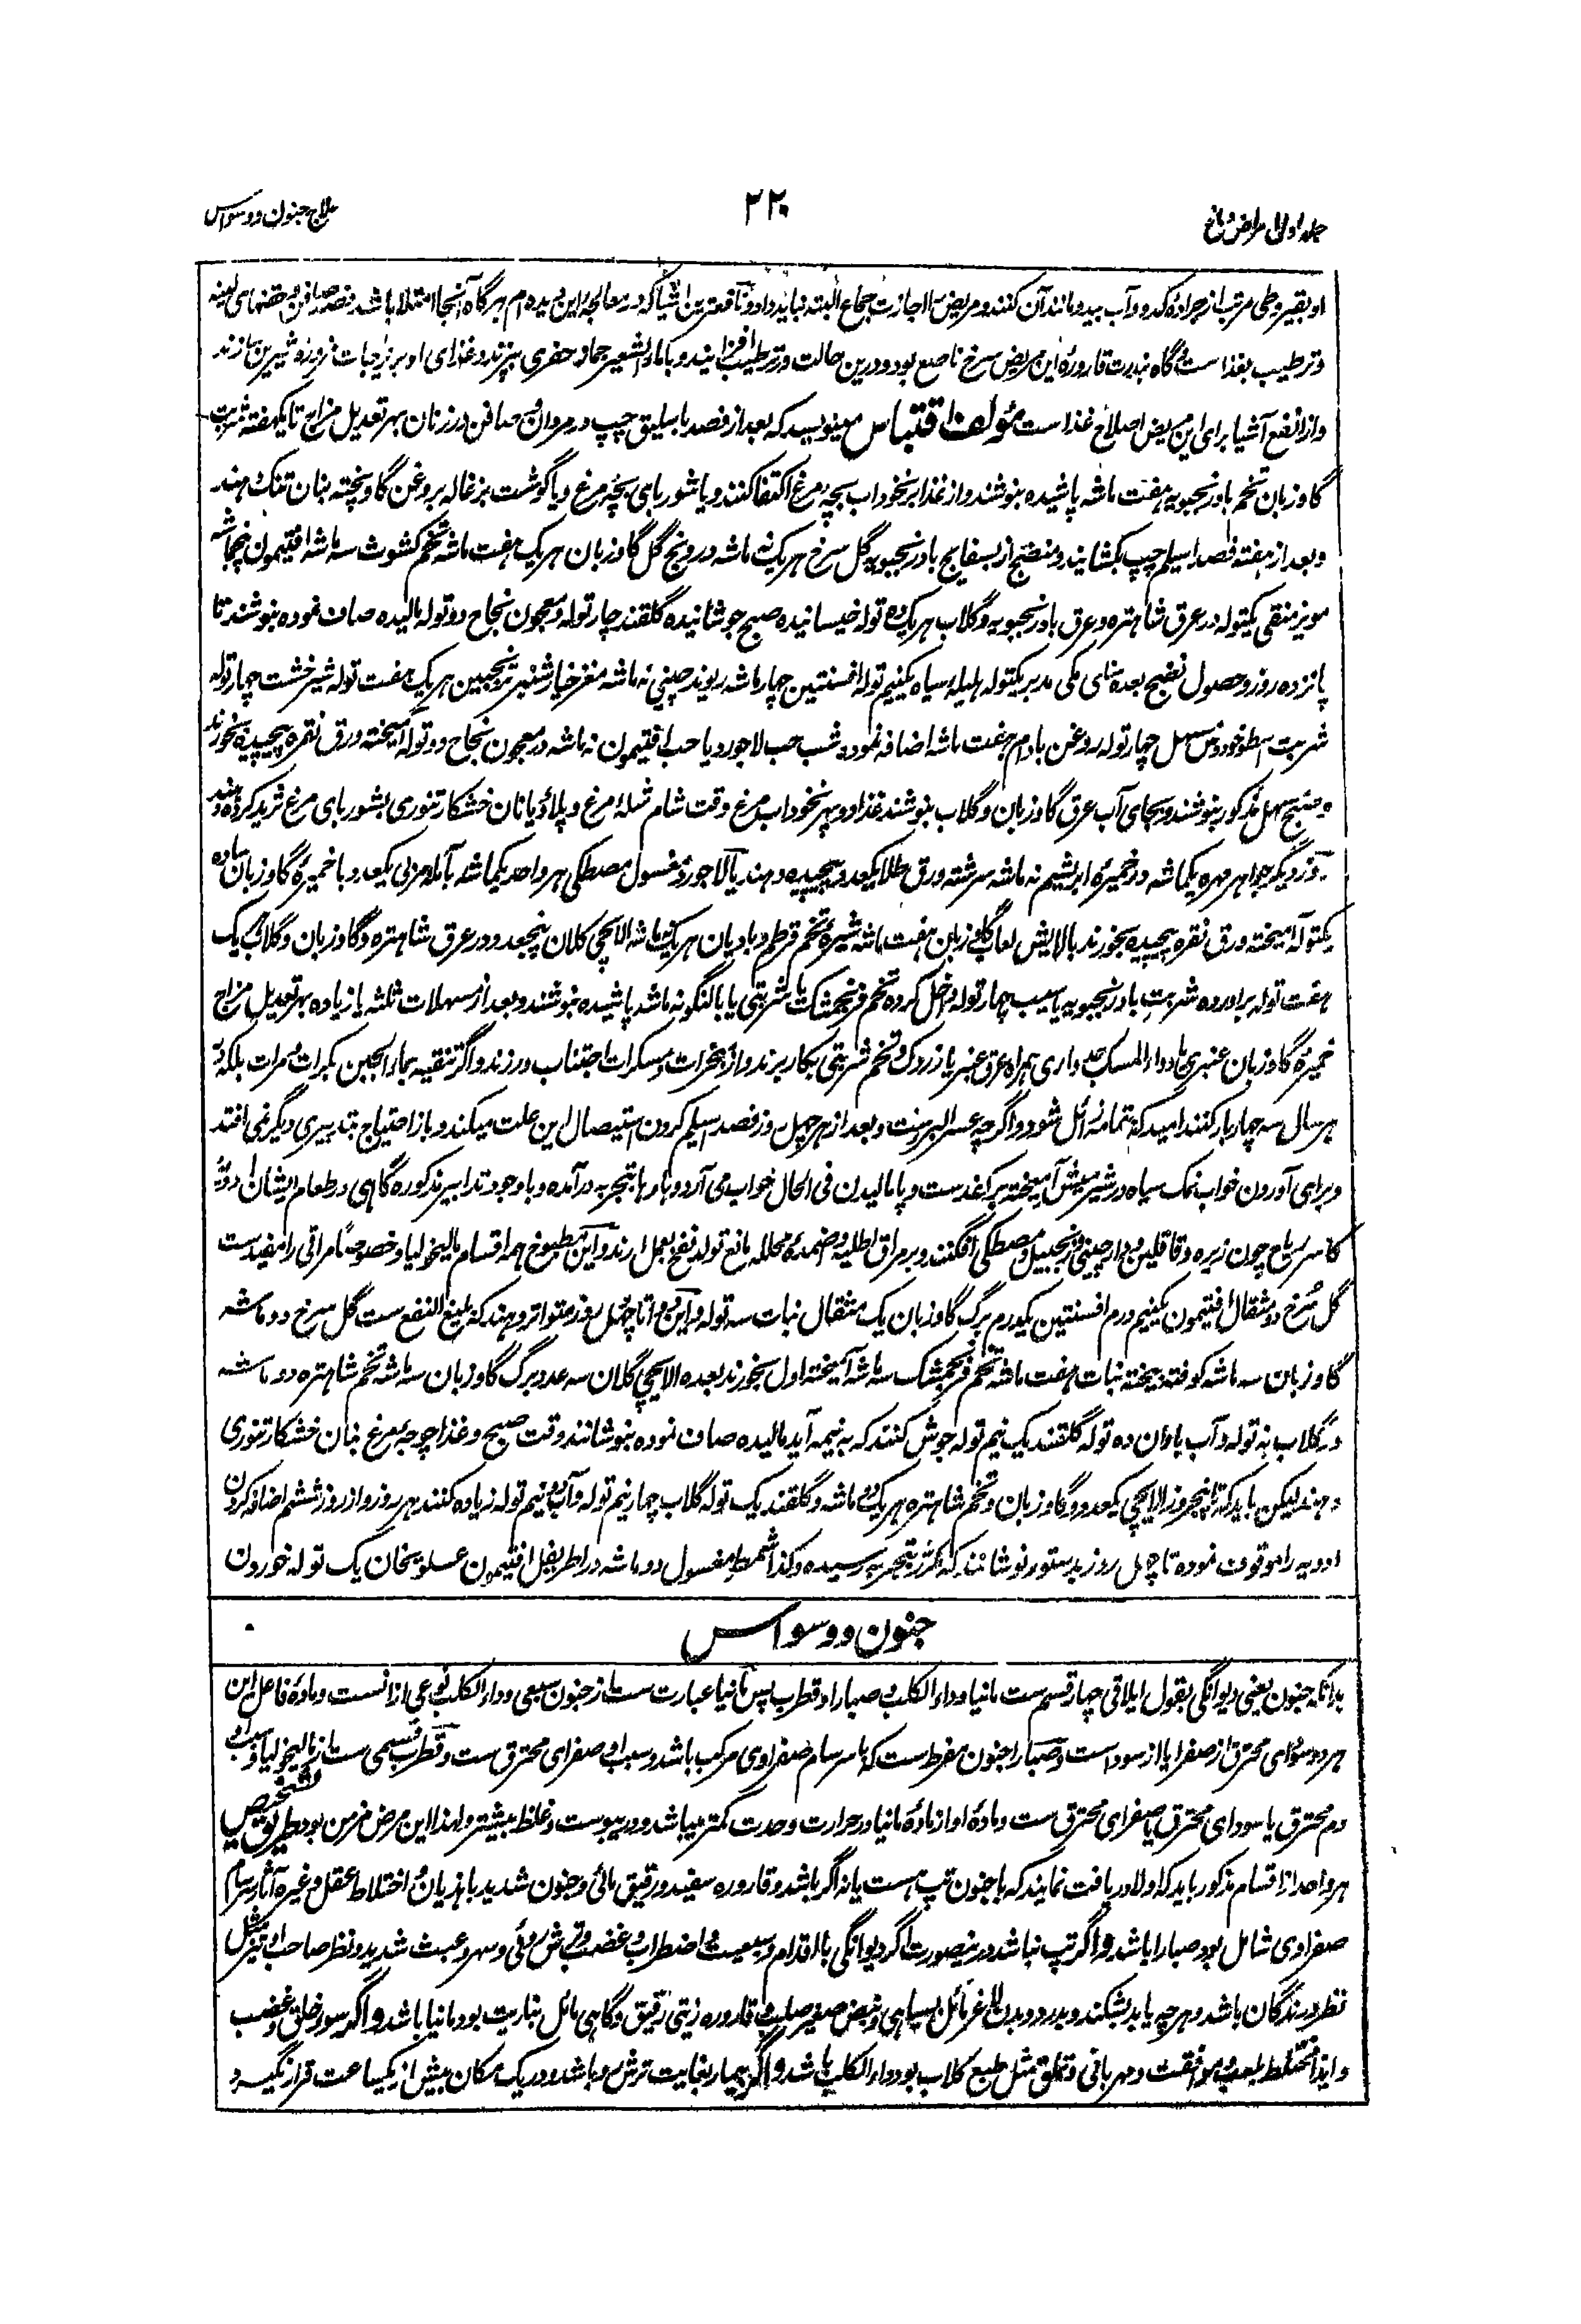 جلد اول امراض دماغ
۲۲۰
علاج جنون و وسواس
او بقیروطی مرتب از جراده کدو و آب بید و مانند آن کنند و مریض را اجازت جماع البته نباید داد و نافعترین اشیا که در معالجه این دیده‌ام هر گاه آنجا امتلا باشد فصد صافن و حقنهای لینه
و ترطیب بغذاست و گاه بندرت قاروره این مریض سرخ ناصع بود و درین حالت در ترطیب افزایند و با ماء الشعیر جمار حفری بپزند و غذای او بر مزاجات مزوره شیرین سازند
و از انفع اشیا برای این مریض اصلاح غذاست مؤلف اقتباس مینویسد که بعد از فصد باسلیق چپ در مردان و صافن در زنان بهر تعدیل مزاج تا یکهفته شربت
گاوزبان تخم بادرنجبویه هفت ماشه پاشیده بنوشند و از غذا بر نخوداب بچه مرغ اکتفا کنند و یا شوربای بچه مرغ و یا گوشت بزغاله بروغن گاو پخته بنان تنک دهند
و بعد از هفته فصد اسیلم چپ بکشایند و منضج از بسفایج بادرنجبویه گل سرخ هر یک نه ماشه درونج گل گاوزبان هر یک هفت ماشه تخم کشوث سه ماشه افتیمون پنجماشه
مویز منقی یکتوله در عرق شاهتره و عرق بادرنجبویه و گلاب هر یک ده توله خیسانیده صبح جوشانیده گلقند چار توله و معجون نجاح دو توله مالیده صاف نموده بنوشند تا
پانزده روز و حصول نضج بعده سنای مکی مدبر یکتوله هلیله سیاه یکنیم توله افسنتین چهار ماشه ریوند چینی نه ماشه مغز خیارشنبر ترنجبین هر یک هفت توله شیرخشت چهار توله
شربت اسطوخودوس مسهل چهار توله روغن بادام هفت ماشه اضافه نموده شب حب لاجورد یا حب افتیمون نه ماشه در معجون نجاح دو توله آمیخته ورق نقره پیچیده بخورند
و صبح مسهل مذکور بنوشند و بجای آب عرق گاوزبان و گلاب بنوشند غذا دوپهر نخوداب مرغ وقت شام شله مرغ و پلاؤ یا نان خشکار تنوری بشوربای مرغ ثرید کرده دهند
روز دیگر جواهر مهره یکماشه در خمیره ابریشم نه ماشه سرشته ورق طلا یکعدد پیچیده دهند یا لاجورد مغسول مصطکی هر واحد یکماشه با آمله مربی یکعدد یا خمیره گاوزبان ساده
یکتوله آمیخته ورق نقره پیچیده بخورند بالایش لعاب گاوزبان هفت ماشه شیره تخم قرطم و بادیان هر یک نه ماشه الایچی کلان پنجعدد در عرق شاهتره و گاوزبان و گلاب هر یک
هفت توله برآورده شربت بادرنجبویه یا سیب چهار توله داخل کرده تخم فرنجمشک یا شربتی یا بالنگو نه ماشه پاشیده بنوشند و بعد از مسهلات ثلثه یا زیاده بهر تعدیل مزاج
خمیره گاوزبان عنبری یا دواء المسک جدواری همراه عرق عنبر یا زردک و تخم شربتی بکار برند و از مبخرات و مسکرات اجتناب ورزند و اگر تنقیه بماء الجبن بکرات و مرات بلکه در
هر سال سه چهار بار کنند امید که بتمامه زائل شود و اگرچه عسر البرءست و بعد از هر چهل روز فصد اسیلم کردن استیصال این علت میکند و باز احتیاج بتدبیری دیگر نمی افتد
و برای آوردن خواب نمک سیاه در شیر میش آمیخته بر کف دست و پا مالیدن فی الحال خواب می آرد و بارها بتجربه درآمده و با وجود تدابیر مذکوره گاهی در طعام ایشان ادویه
کاسر ریاح چون زیره و قاقلین و دارچینی و زنجبیل و مصطکی افگنند و بر مراق اطلیه و ضمده محلله مانع تولد نفخ بعمل آرند و این مطبوخ همه اقسام مالیخولیا و خصوصاً مراقی را مفیدست
گل سرخ دو مثقال افتیمون یکنیم درم افسنتین یکدرم برگ گاوزبان یک مثقال نبات سه توله و این دوا تا چهل روز متواتر دهند که بلیغ النفع ست گل سرخ دو ماشه
گاوزبان سه ماشه کوفته بیخته نبات هفت ماشه تخم فرنجمشک سه ماشه آمیخته اول بخورند بعده الایچی کلان سه عدد برگ گاوزبان سه ماشه تخم شاهتره دو ماشه
در گلاب نه توله و آب باران ده توله گلقند یک نیم توله جوش کنند که به نیمه آید مالیده صاف نموده بنوشانند وقت صبح و غذا چوجه مرغ بنان خشکار تنوری
دهند لیکن باید که تا پنجروز الایچی یکعدد و گاوزبان و تخم شاهتره هر یک دو ماشه و گلقند یک توله گلاب چهار نیم توله و آب نیم توله زیاده کنند هر روز و از روز ششم اضافه کردن
ادویه را موقوف نموده تا چهل روز بدستور نوشانند که مکرر بتجربه رسیده و کذا مغسول دو ماشه در اطریفل افتیمون علویخان یک توله خوردن
جنون و وسواس
بدانکه جنون یعنی دیوانگی بقول ایلاقی چهار قسم ست مانیا و داء الکلب و صبارا و قطرب پس مانیا عبارت ست از جنون سبعی و داء الکلب نوعی ازانست و ماده فاعل این
هر دو سودای محترق از صفرا یا از سوداست و صبارا جنون مفرط ست که با سرسام صفراوی مرکب باشد و سبب او صفرای محترق ست و قطرب قسمی ست از مالیخولیا و سبب او
دم محترق یا سودای محترق یا صفرای محترق ست و ماده او از ماده مانیا در حرارت وحدت کمتر میباشد و در یبوست و غلظ بیشتر و لهذا این مرض مزمن بود طریق تشخیص
هر واحد از اقسام مذکور باید که اولا دریافت نمایند که با جنون تپ هست یا نه اگر باشد و قاروره سفید و رقیق مائی و جنون شدید با هذیان و اختلاط عقل و غیره آثار سرسام
صفراوی شامل بود صبارا باشد و اگر تپ نباشد درینصورت اگر دیوانگی با اقدام و سبعیت و اضطراب و غضب و ترش روئی و سهر و عبث شدید و نظر صاحب او تیز مثل
نظر درندگان باشد و هر چه یابد بشکند و بدرد و بدن لاغر مائل بسیاهی و نبض صغیر صلب و قاروره زیتی رقیق و گاهی مائل بناریت بود مانیا باشد و اگر سوء خلق و غضب
و ایذا مختلط بلعب و موافقت و مهربانی و تملق مثل طبع کلاب بود داء الکلب باشد و اگر بیمار بغایت ترش رو باشد و در یک مکان بیش از یکساعت قرار نگیرد و